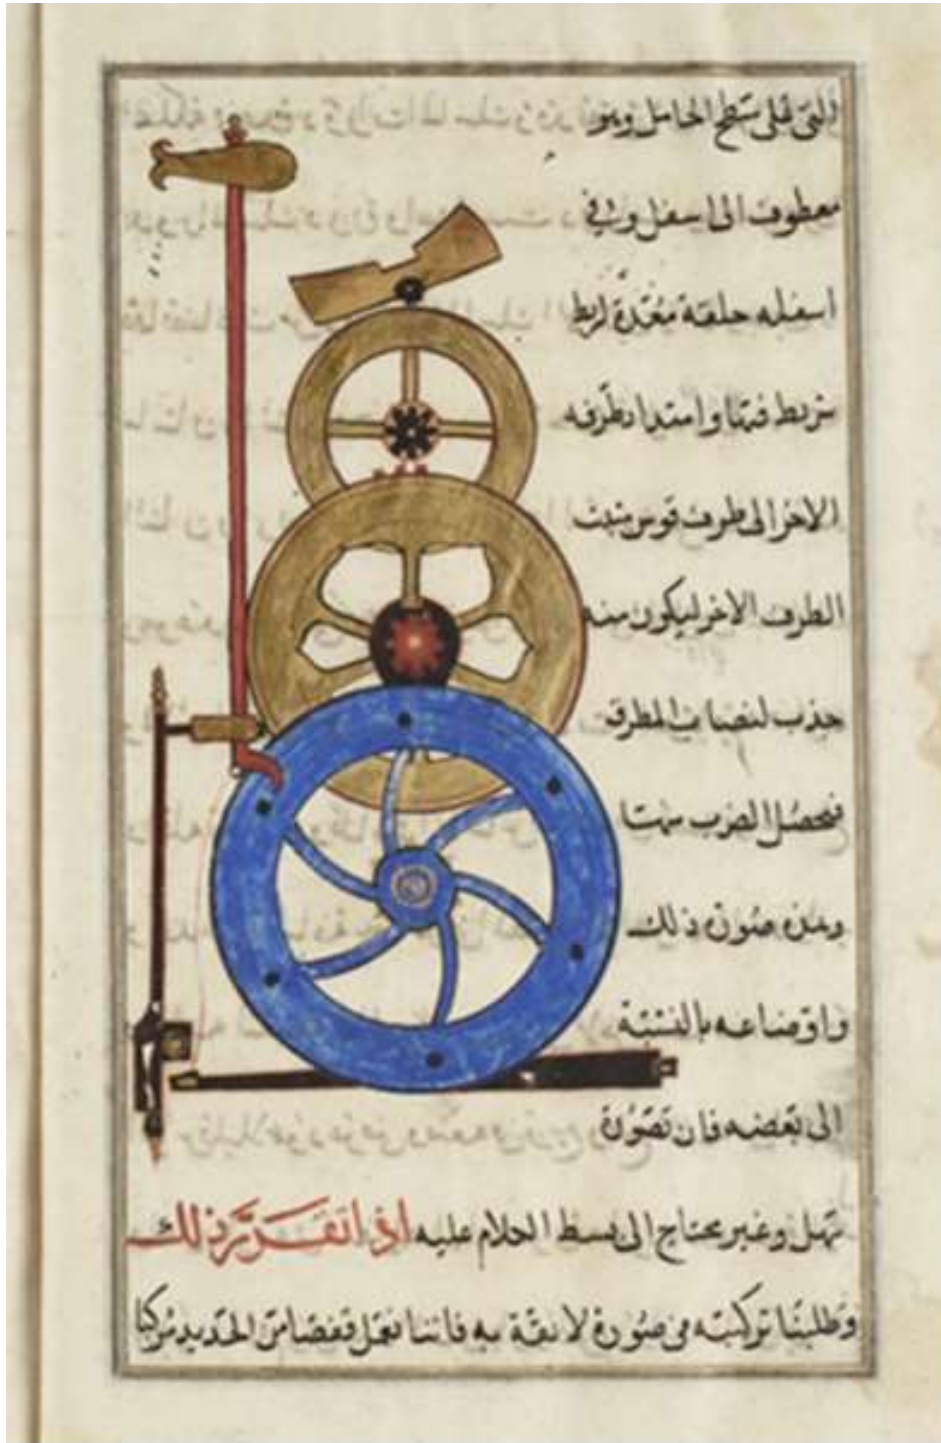 التي على سطح الحامل وهو
معطوف الى اسفل وفي
اسفله حلقة معدة لربط
شريط فيها وامتداد طرفه
الاخر الى طرف قوس مثبت
الطرف الاخر ليكون منه
جذب لنصاب المطرقة
فيحصل الضرب بها
وهذه صورة ذلك
واوضاعه بالنسبة
الى بعضه فان تصوره
سهل وغير محتاج الى بسط الكلام عليه اذا تقرر ذلك
وطلبنا تركيبه في صورة لائقة به فاننا نعمل قفصا من الحديد مركبا